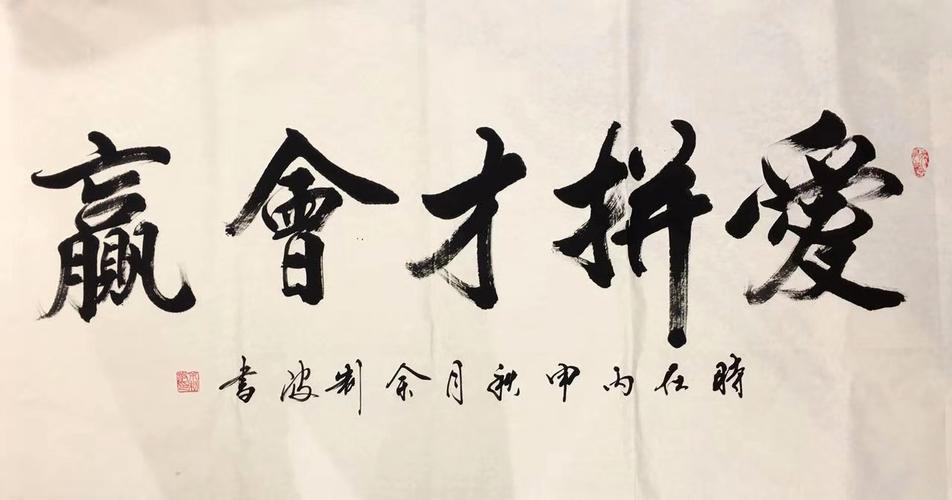 愛拼才會贏
時在丙申秋月余剑波书